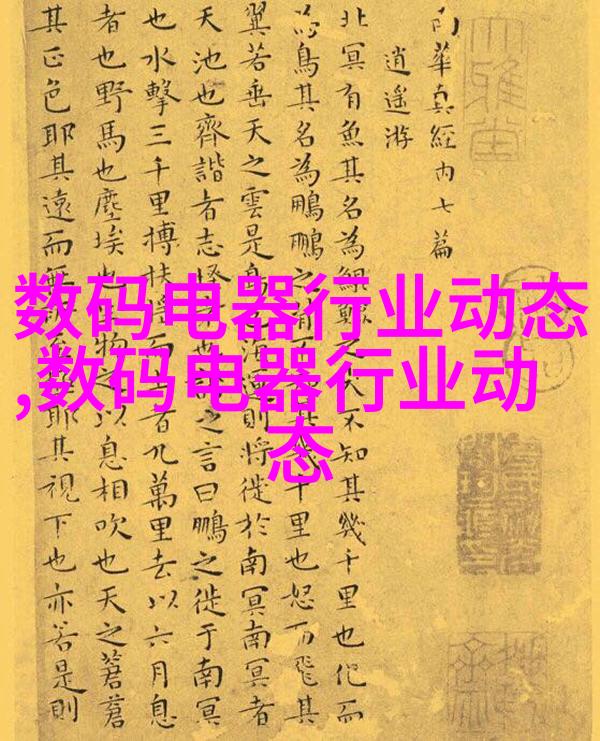 数码电器行业动态
,数码电器行业动
态
南華真經内七篇
逍遥游
北冥有魚其名為鯤鯤之大不知其幾千里也化而
為鳥其名為鵬鵬之背不其幾千里也怒而飛其
翼若垂天之雲是鳥也海運則將徙於南冥南冥者
天池也齊諧者志怪者也諧之言曰鵬之徙于南冥
也水擊三千里搏扶摇而上者九萬里去以六月息
者也野馬也塵埃也生物之以息相吹也天之蒼蒼
其正色耶其遠而無所至極耶其視下也亦若是則